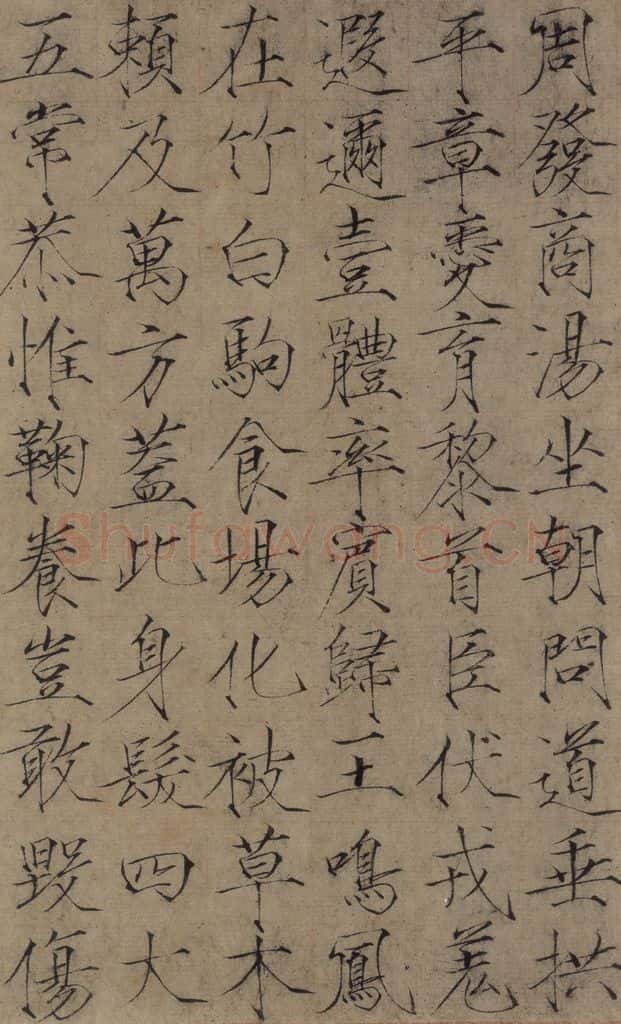 周發商湯坐朝問道垂拱
平章愛育黎首臣伏戎羌
遐邇壹體率賓歸王鳴鳳
在竹白駒食場化被草木
賴及萬方蓋此身髮四大
五常恭惟鞠養豈敢毀傷
Shufawang.CN